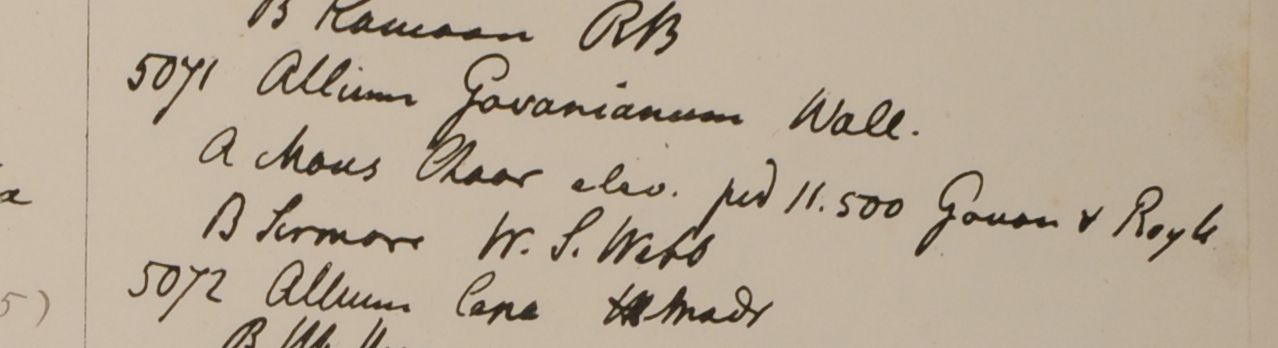 B Kamaon RB
5071 Allium Govanianum Wall.
A Mons Chaor elev. ped 11.500 Govan & Royle
B Sirmore W. S. Webb
5072 Allium Cepa H Madr
B